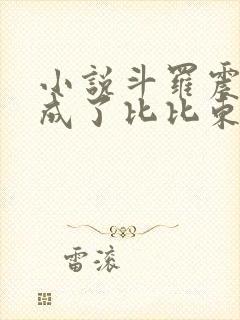 小說斗羅震
成了比比東
雷滚